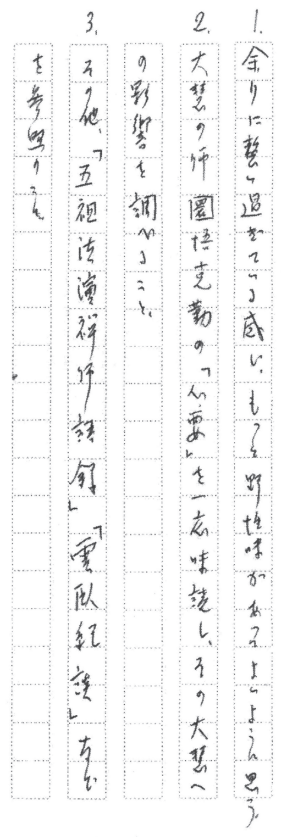 1. 余りに整い過ぎている感じ、もっと野性味があってよいように思う。
2. 大慧の師圜悟克勤の「心要」を一応味読し、その大慧へ
の影響を調べること、
3. その他、「五祖法演禅師語録」「雲臥紀談」など
を参照のこと。